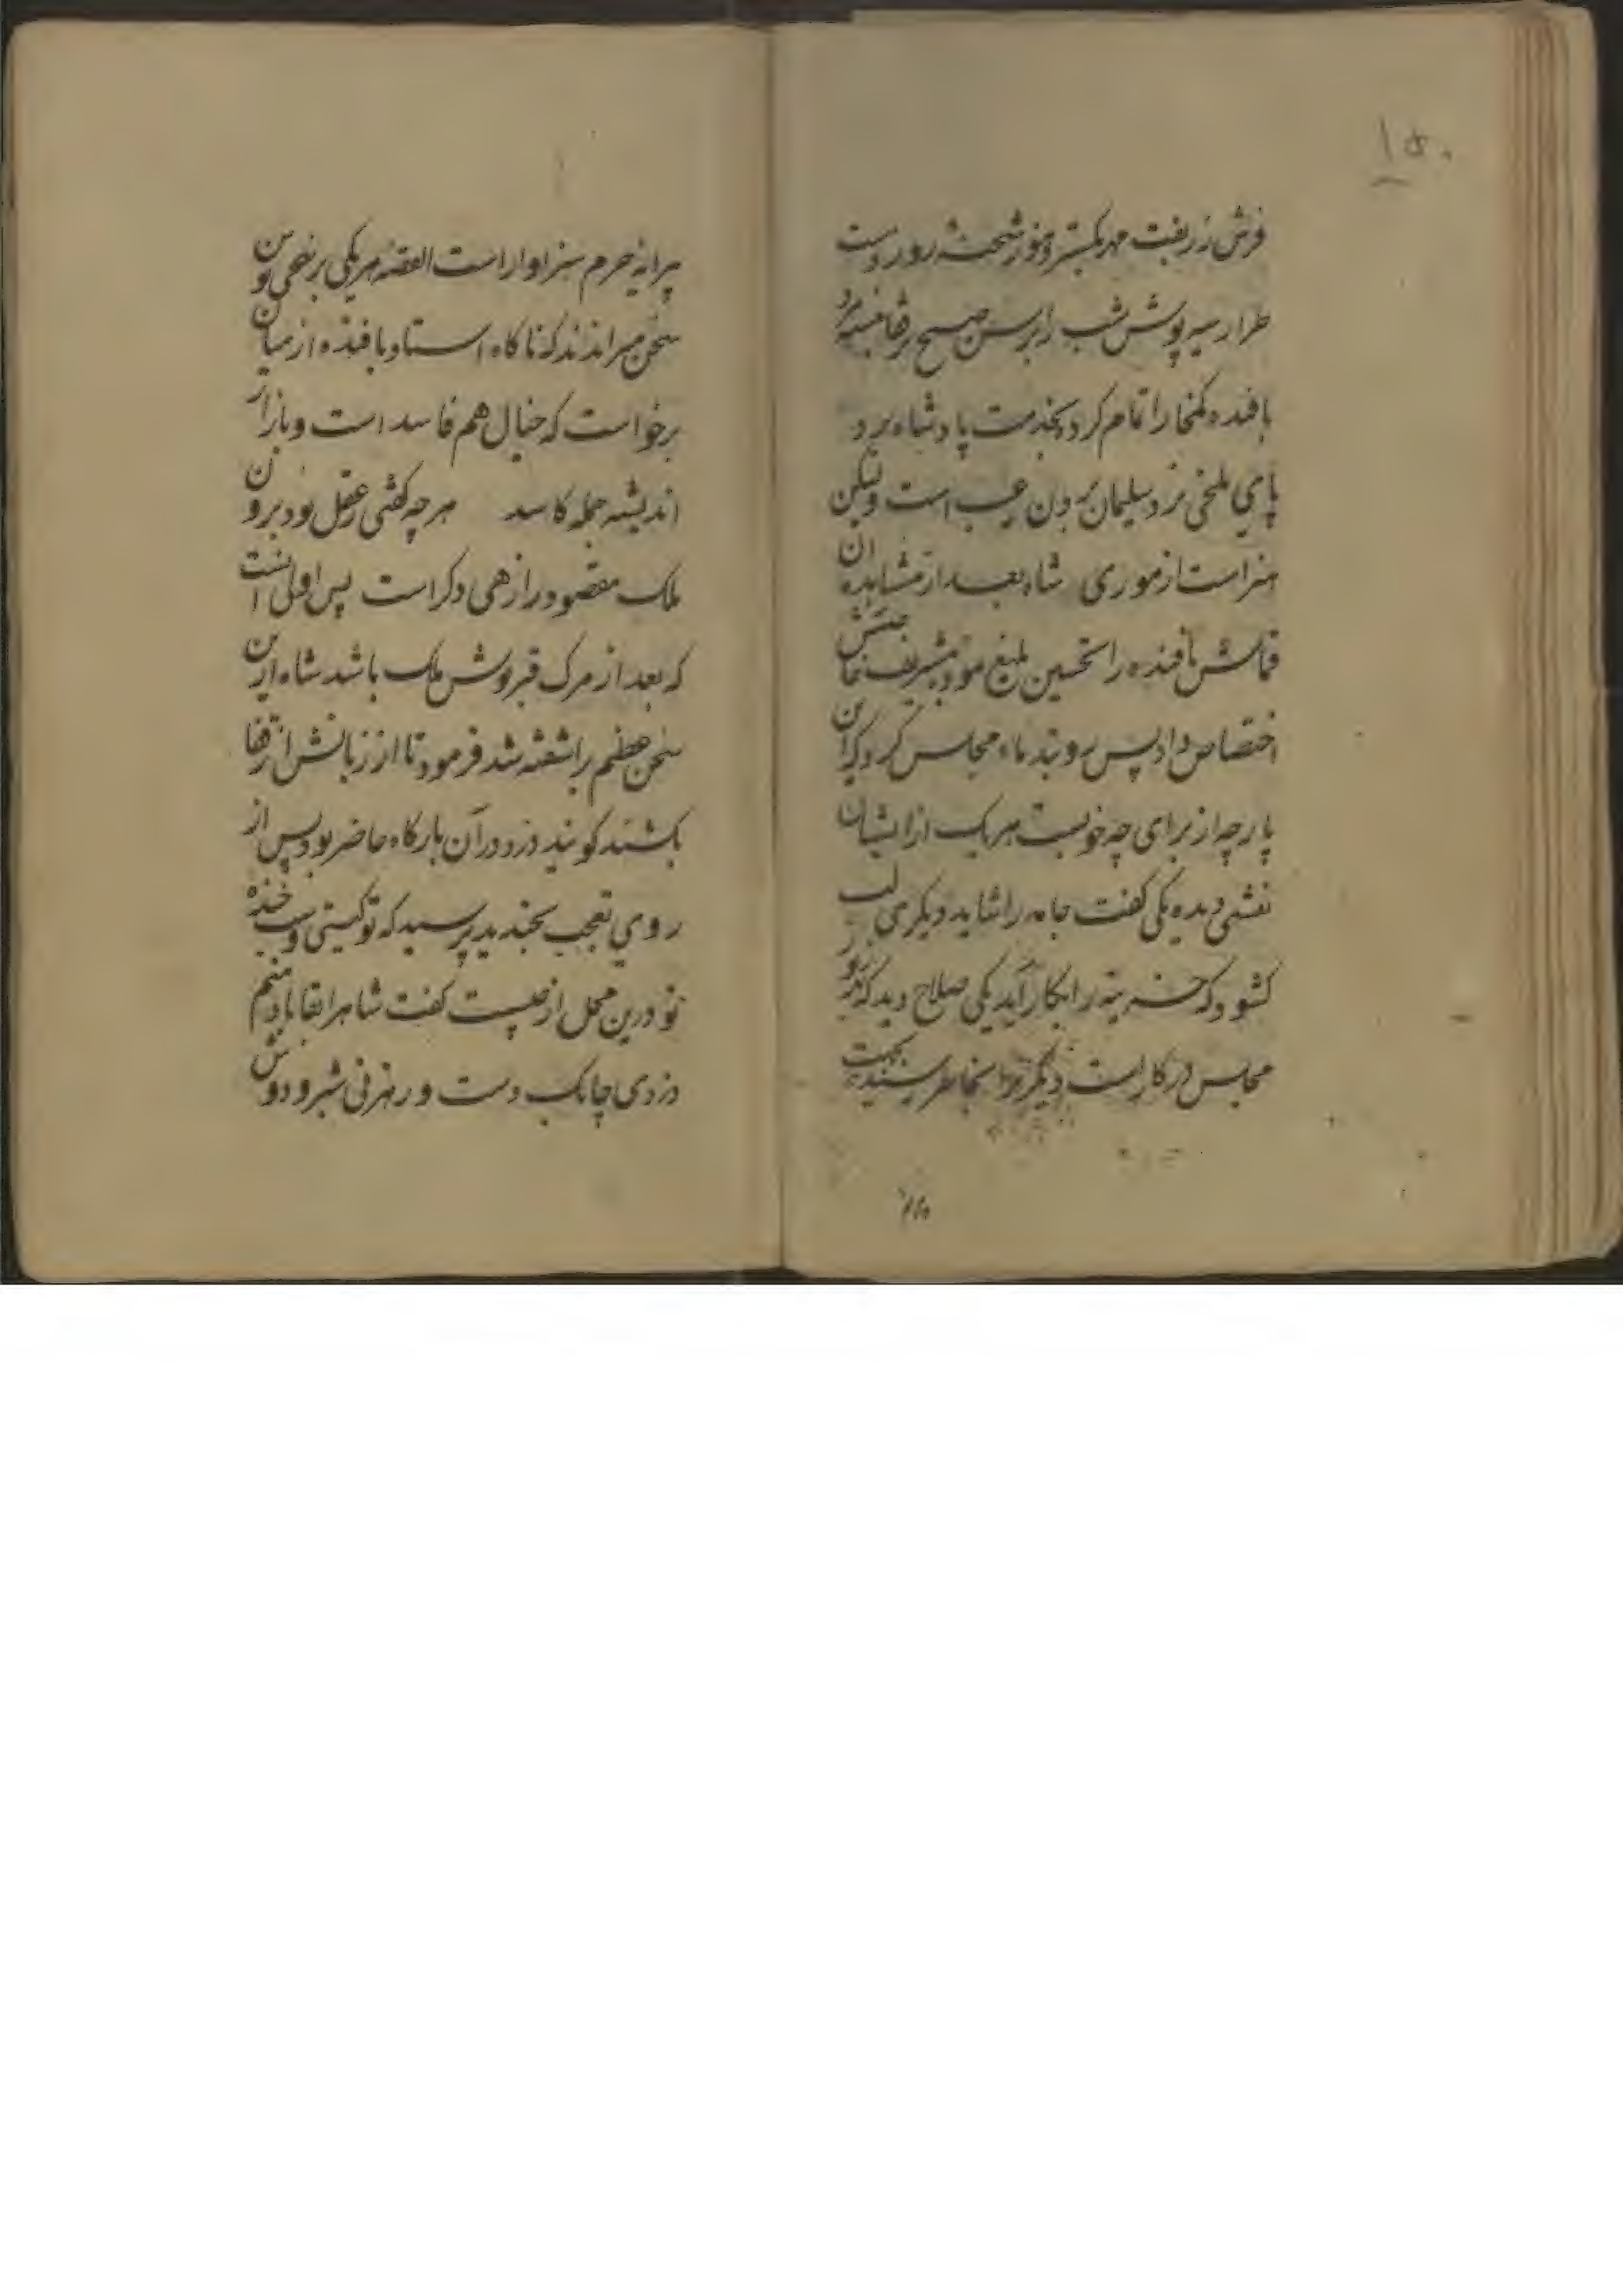 ۱۵۰
فرش زربفت مهر بکسترد و خور شحنه روز دست
طرار سیه پوش شب را برسن صبح بر قفا بسته
بافنده کمخا را تمام کرد بخدمت پادشاه برد
پای ملخی نزد سلیمان بردن عیب است ولیکن
هنر است از موری شاه بعد از مشاهده ان
قماش بافنده را تحسین بلیغ نمود بتشریف خاص
اختصاص داد پس رو بندماء مجلس کرد که این
پارچه از برای چه خوبست هر یک از ایشان
نقشی دیده یکی گفت جامه را شاید دیگری لب
کشود که خزینه را بکار آید یکی صلاح دید که
مجلس در کار است دیگر بخاطر رسید بجهت
پرایه حرم سزاوار است القصه هر یکی بر نحوی
سخن میراندند که ناکاه استاد بافنده از میان
برخواست که خیال هم فاسد است و بازار
اندیشه جمله کاسد هر چه کفتی ز عقل بود برون
ملک مقصود را زهی دکر است پس اولی انست
که بعد از مرک قبرپوش ملک باشد شاه از این
سخن عظیم براشفته شد فرمود تا از زبانش از قفا
بکشند کویند دزد در آن بارکاه حاضر بود پس از
روی تعجب بخندید پرسید که تو کیستی و سبب خنده
تو درین محل از چیست کفت شاها را بقا باد منم
دزدی چابک دست و رهزنی شبرو دوش